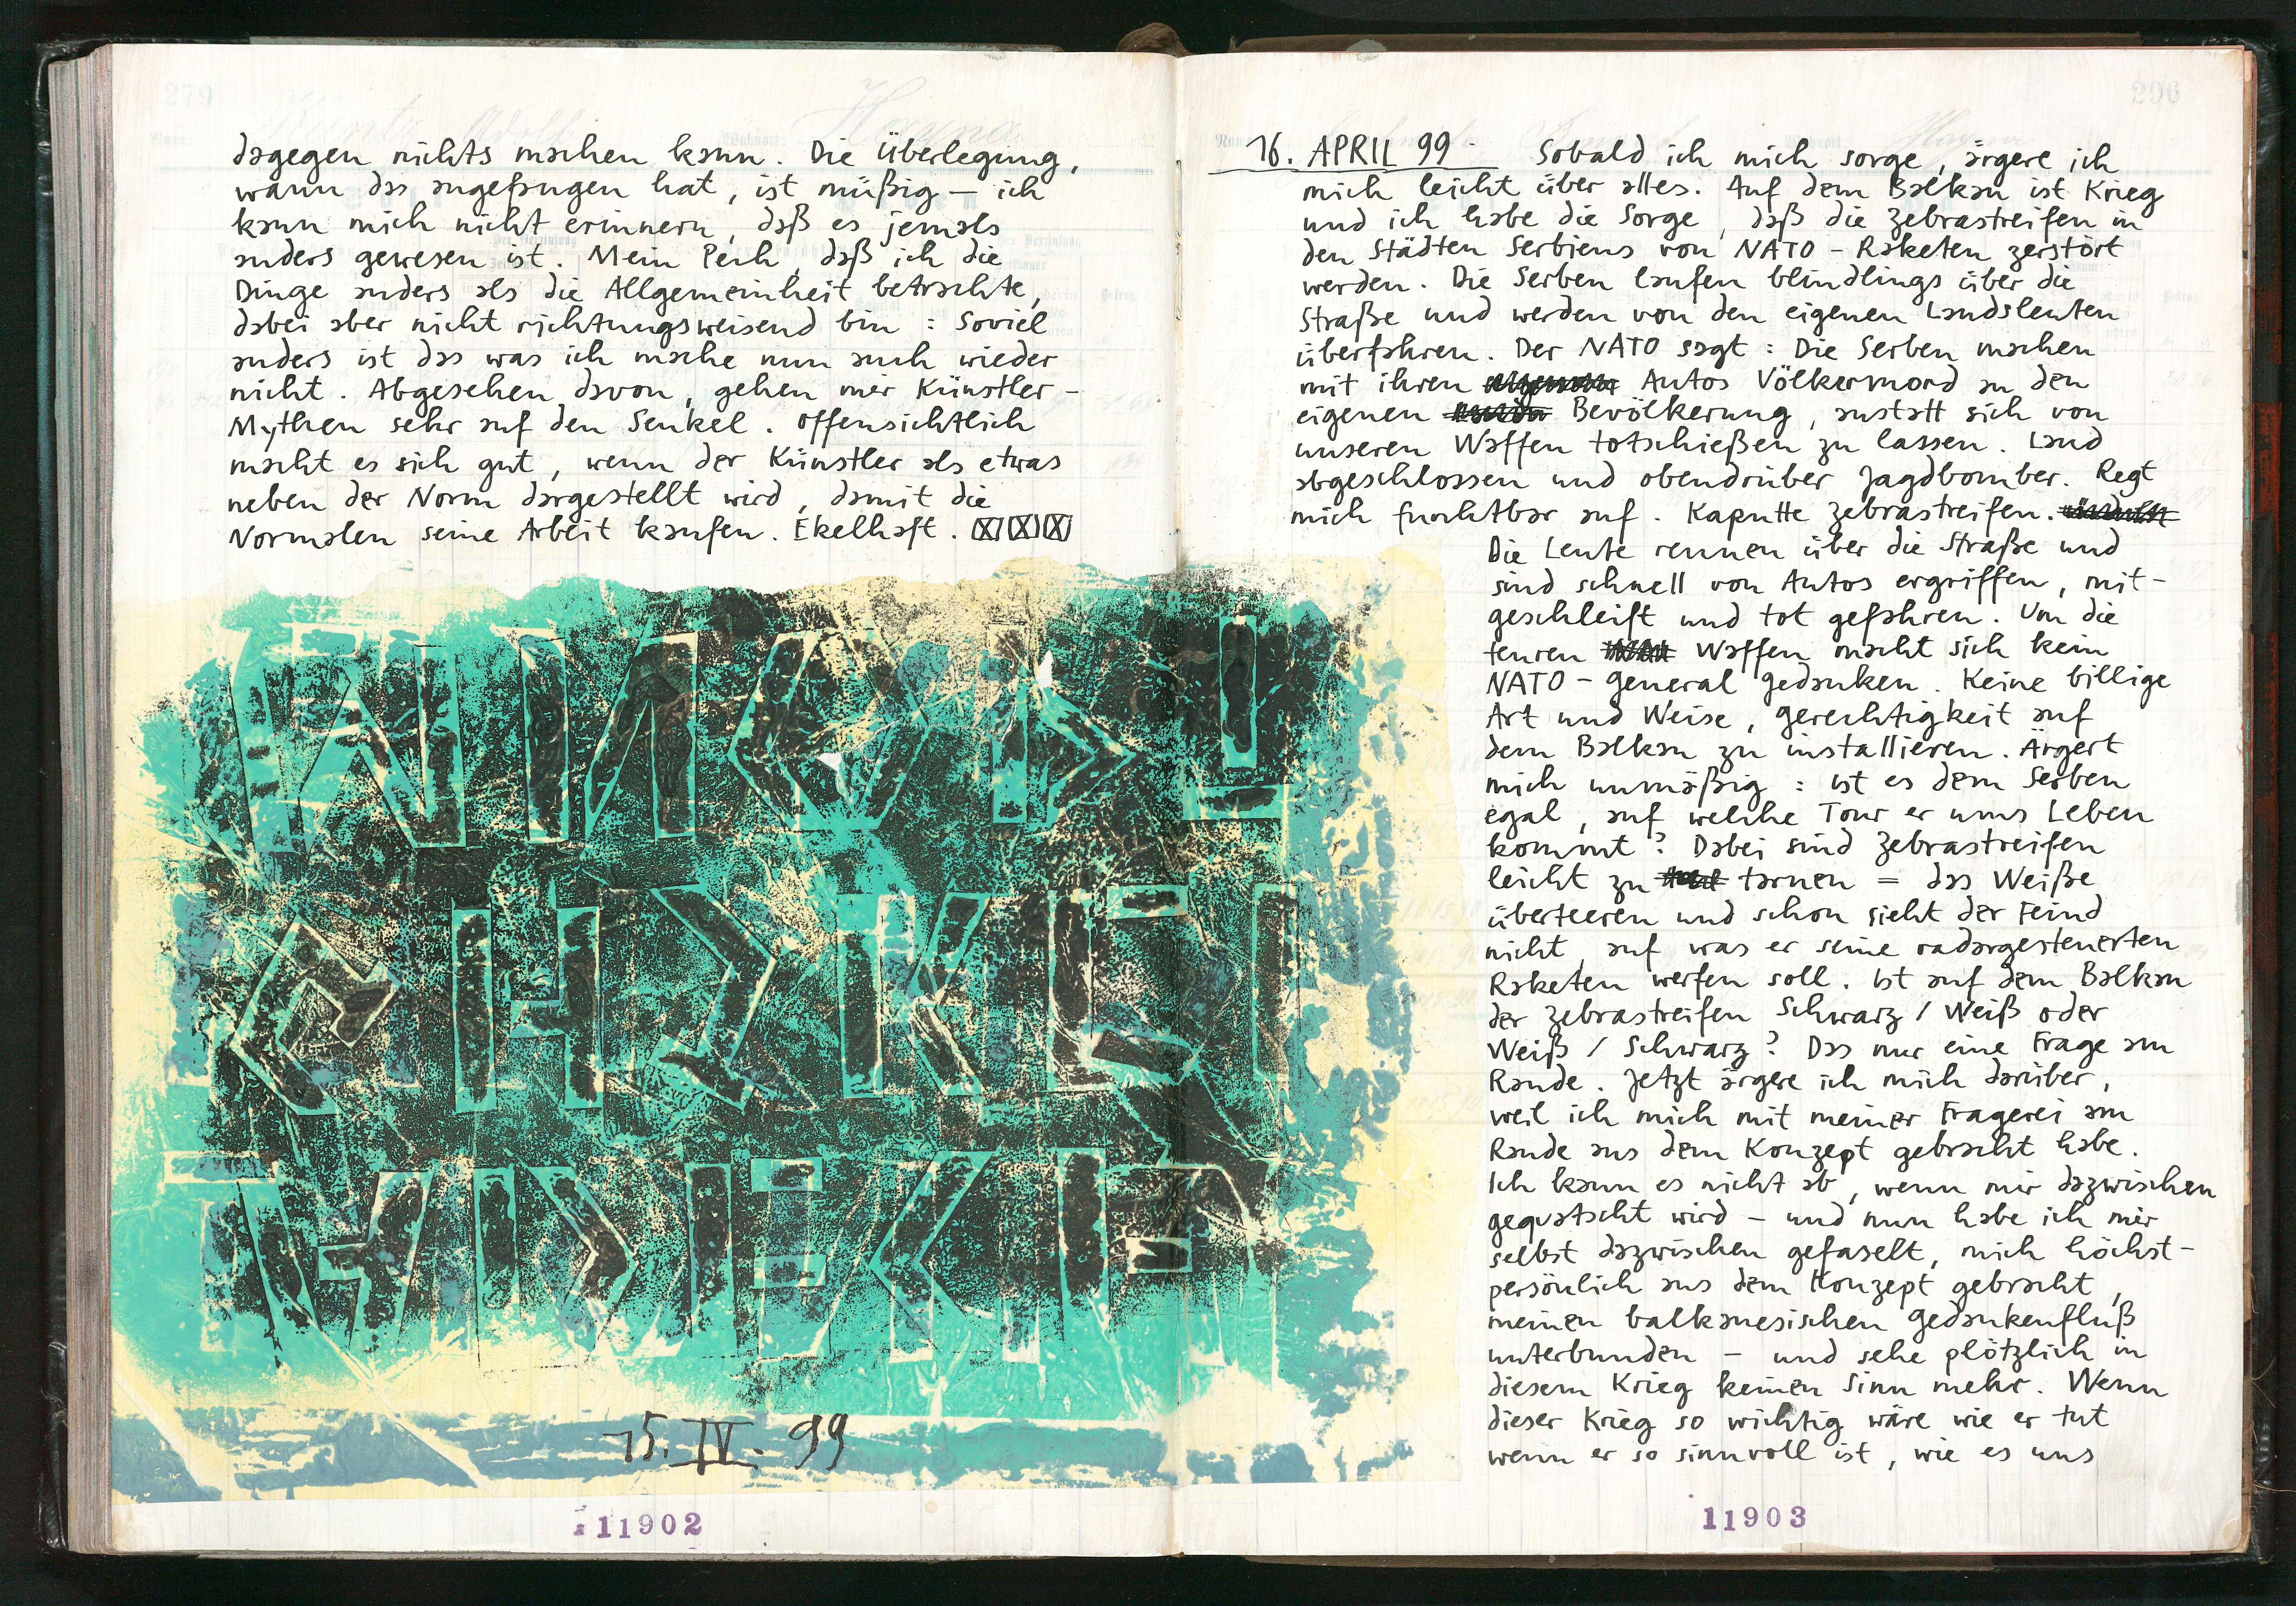 dagegen nichts machen kann. Die Überlegung,
wann das angefangen hat, ist müßig – ich
kann mich nicht erinnern, daß es jemals
anders gewesen ist. Mein Pech, daß ich die
Dinge anders als die Allgemeinheit betrachte,
dabei aber nicht richtungsweisend bin : Soviel
anders ist das was ich mache nun auch wieder
nicht. Abgesehen davon, gehen mir Künstler-
Mythen sehr auf den Senkel. Offensichtlich
macht es sich gut, wenn der Künstler als etwas
neben der Norm dargestellt wird, damit die
Normalen seine Arbeit kaufen. Ekelhaft.
15. IV. 99
11902
296
16. APRIL 99 Sobald ich mich sorge, ärgere ich
mich leicht über alles. Auf dem Balkan ist Krieg
und ich habe die Sorge, daß die Zebrastreifen in
den Städten Serbiens von NATO-Raketen zerstört
werden. Die Serben laufen blindlings über die
Straße und werden von den eigenen Landsleuten
überfahren. Der NATO sagt : Die Serben machen
mit ihren Autos Völkermord an den
eigenen Bevölkerung, anstatt sich von
unseren Waffen totschießen zu lassen. Land
abgeschlossen und obendrüber Jagdbomber. Regt
mich furchtbar auf. Kaputte Zebrastreifen.
Die Leute rennen über die Straße und
sind schnell von Autos ergriffen, mit-
geschleift und tot gefahren. Um die
teuren Waffen macht sich kein
NATO-General Gedanken. Keine billige
Art und Weise, Gerechtigkeit auf
dem Balkan zu installieren. Ärgert
mich unmäßig : ist es dem Serben
egal, auf welche Tour er ums Leben
kommt? Dabei sind Zebrastreifen
leicht zu tarnen = das Weiße
überteeren und schon sieht der Feind
nicht, auf was er seine radargesteuerten
Raketen werfen soll. Ist auf dem Balkan
der Zebrastreifen Schwarz / Weiß oder
Weiß / Schwarz? Das nur eine Frage am
Rande. Jetzt ärgere ich mich darüber,
weil ich mich mit meiner Fragerei am
Rande aus dem Konzept gebracht habe.
Ich kann es nicht ab, wenn mir dazwischen
gequatscht wird – und nun habe ich mir
selbst dazwischen gefaselt, mich höchst-
persönlich aus dem Konzept gebracht,
meinen balkanesischen Gedankenfluß
unterbunden – und sehe plötzlich in
diesem Krieg keinen Sinn mehr. Wenn
dieser Krieg so wichtig wäre wie er tut
wenn er so sinnvoll ist, wie es uns
11903